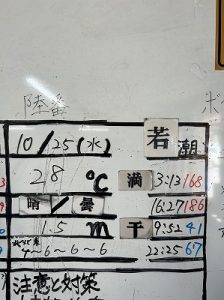 陸番
10/25(水) 若潮
28 ℃ 満 3:13 168
晴/曇 16:27 186
1.5 m 干 9:52 41
6~6~6 22:25 67
注意と対策